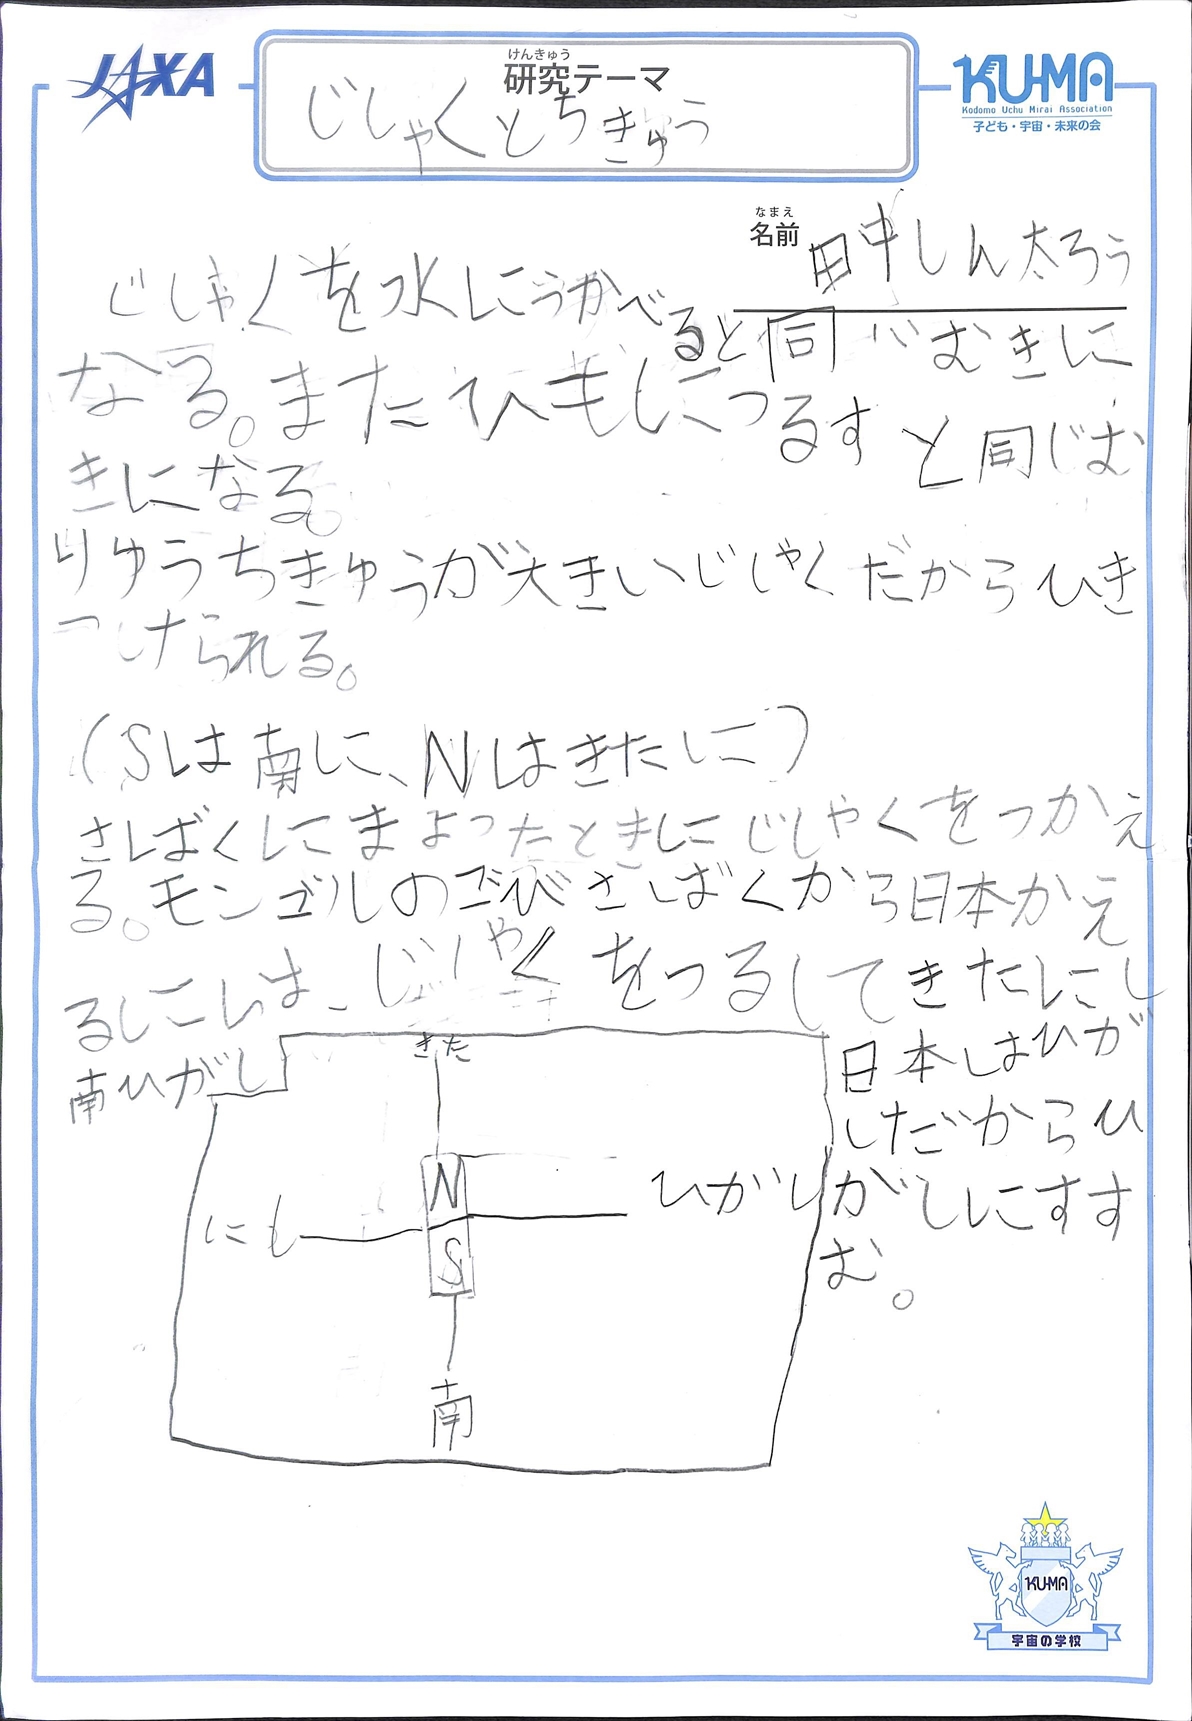 JAXA
けんきゅう
研究テーマ
じしゃくとちきゅう
KU-MA
Kodomo Uchu Mirai Association
子ども・宇宙・未来の会
なまえ
名前
田中しん太ろう
じしゃくを水にうかべると同じむきに
なる。またひもにつるすと同じむ
きになる。
りゅうちきゅうが大きいじしゃくだからひき
つけられる。
(Sは南に、Nはきたに)
さばくにまよったときにじしゃくをつかえ
る。モンゴルのゴびさばくから日本かえ
るにには、じしゃくをつるしてきたにし
南ひがし
日本はひが
しだからひ
がしにすす
む。
きた
N
S
にし
ひがし
南
KU-MA
宇宙の学校